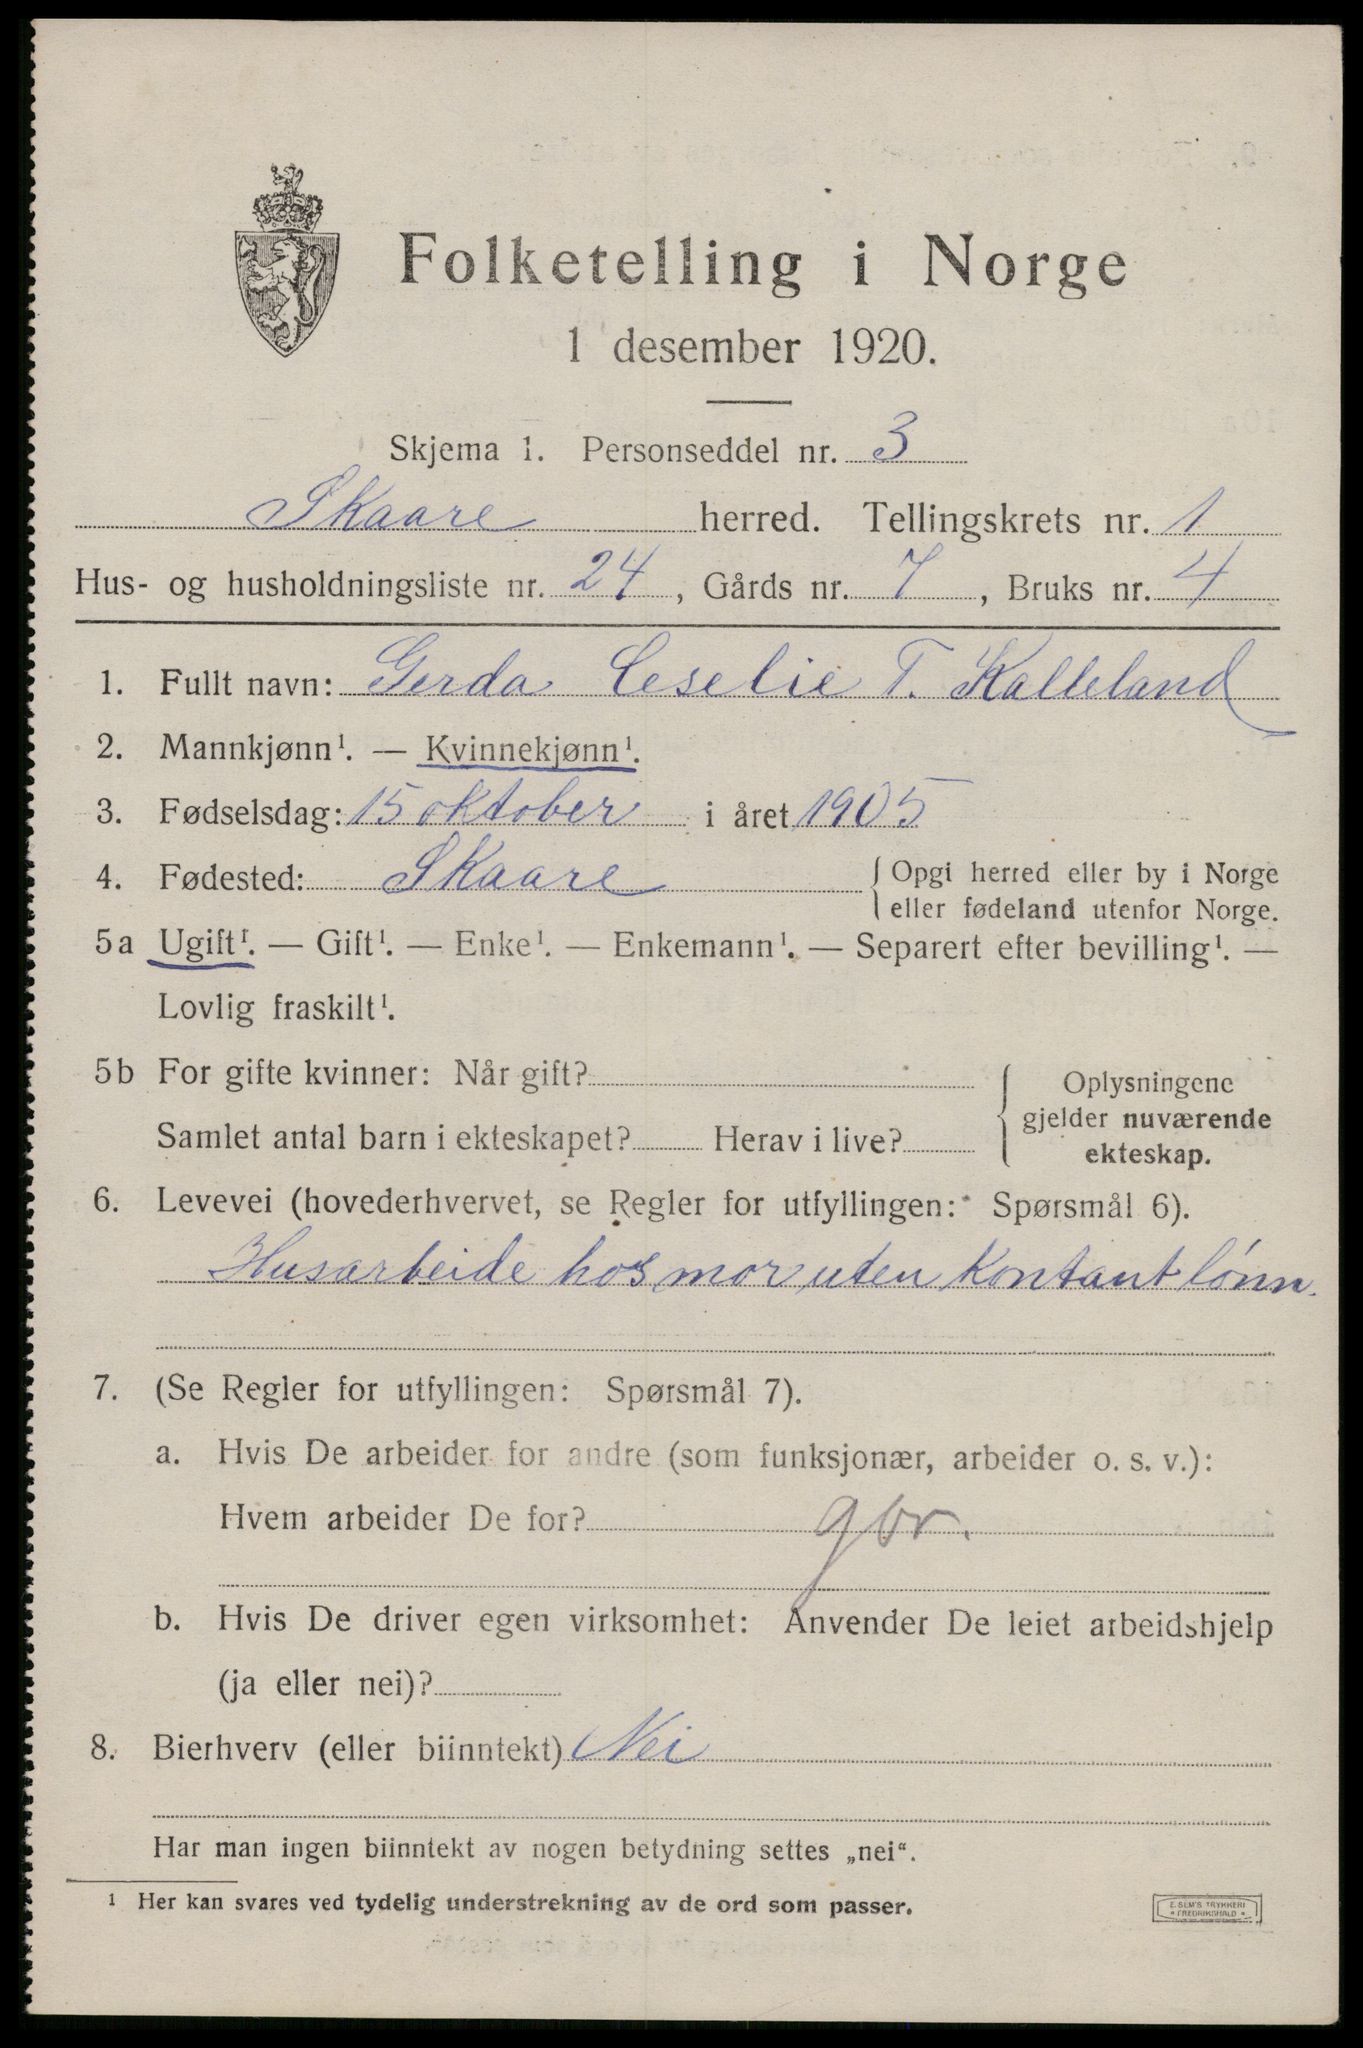 Folketelling i Norge
1 desember 1920.
Skjema 1. Personseddel nr. 3
Skaare herred. Tellingskrets nr. 1
Hus- og husholdningsliste nr. 24, Gårds nr. 7, Bruks nr. 4
1. Fullt navn: Gerda Ceselie T. Kalleland
2. Mannkjønn¹. — Kvinnekjønn¹.
3. Fødselsdag: 15 oktober i året 1905
4. Fødested: Skaare { Opgi herred eller by i Norge
eller fødeland utenfor Norge.
5a Ugift¹. — Gift¹. — Enke¹. — Enkemann¹. — Separert efter bevilling¹. —
Lovlig fraskilt¹.
5b For gifte kvinner: Når gift?
Samlet antal barn i ekteskapet? Herav i live?
Oplysningene
gjelder nuværende
ekteskap.
6. Levevei (hovederhvervet, se Regler for utfyllingen: Spørsmål 6).
Husarbeide hos mor, uten kontant lønn.
7. (Se Regler for utfyllingen: Spørsmål 7).
a. Hvis De arbeider for andre (som funksjonær, arbeider o. s. v.):
Hvem arbeider De for? gbr.
b. Hvis De driver egen virksomhet: Anvender De leiet arbeidshjelp
(ja eller nei)?
8. Bierhverv (eller biinntekt) Nei
Har man ingen biinntekt av nogen betydning settes „nei“.
1 Her kan svares ved tydelig understrekning av de ord som passer.
E. SEM'S TRYKKERI
• FREDRIKSHALD •